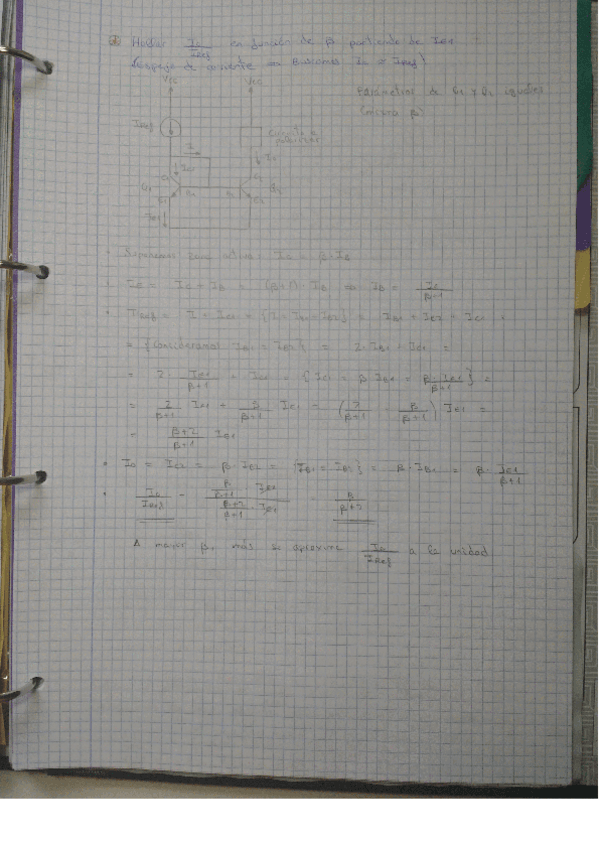 ② Hallar Io/IRef en función de β partiendo de IE1
(espejo de corriente ⇒ Buscamos Io ≃ IRef)
Vcc Vcc
Parámetros de Q1 y Q2 iguales
(misma β)
IRef
I
Io
Q1
Q2
IE1
· Suponemos zona activa: Ic = β · IB
· IE = Ic + IB = (β+1) · IB ⇒ IB = IE/(β+1)
· IRef = I + Ic1 = {I = IB1 + IB2} = IB1 + IB2 + Ic1 =
= {Consideramos IB1 = IB2} = 2 · IB1 + Ic1 =
= 2 · IE1/(β+1) + Ic1 = {Ic1 = β · IB1 = β · IE1/(β+1)} =
= 2/(β+1) IE1 + β/(β+1) IE1 = (2/(β+1) + β/(β+1)) IE1 =
= (β+2)/(β+1) IE1
· Io = Ic2 = β · IB2 = {IB1 = IB2} = β · IB1 = β · IE1/(β+1)
· Io/IRef = (β/(β+1) · IE1)/((β+2)/(β+1) · IE1) = β/(β+2)
A mayor β, más se aproxima Io/IRef a la unidad